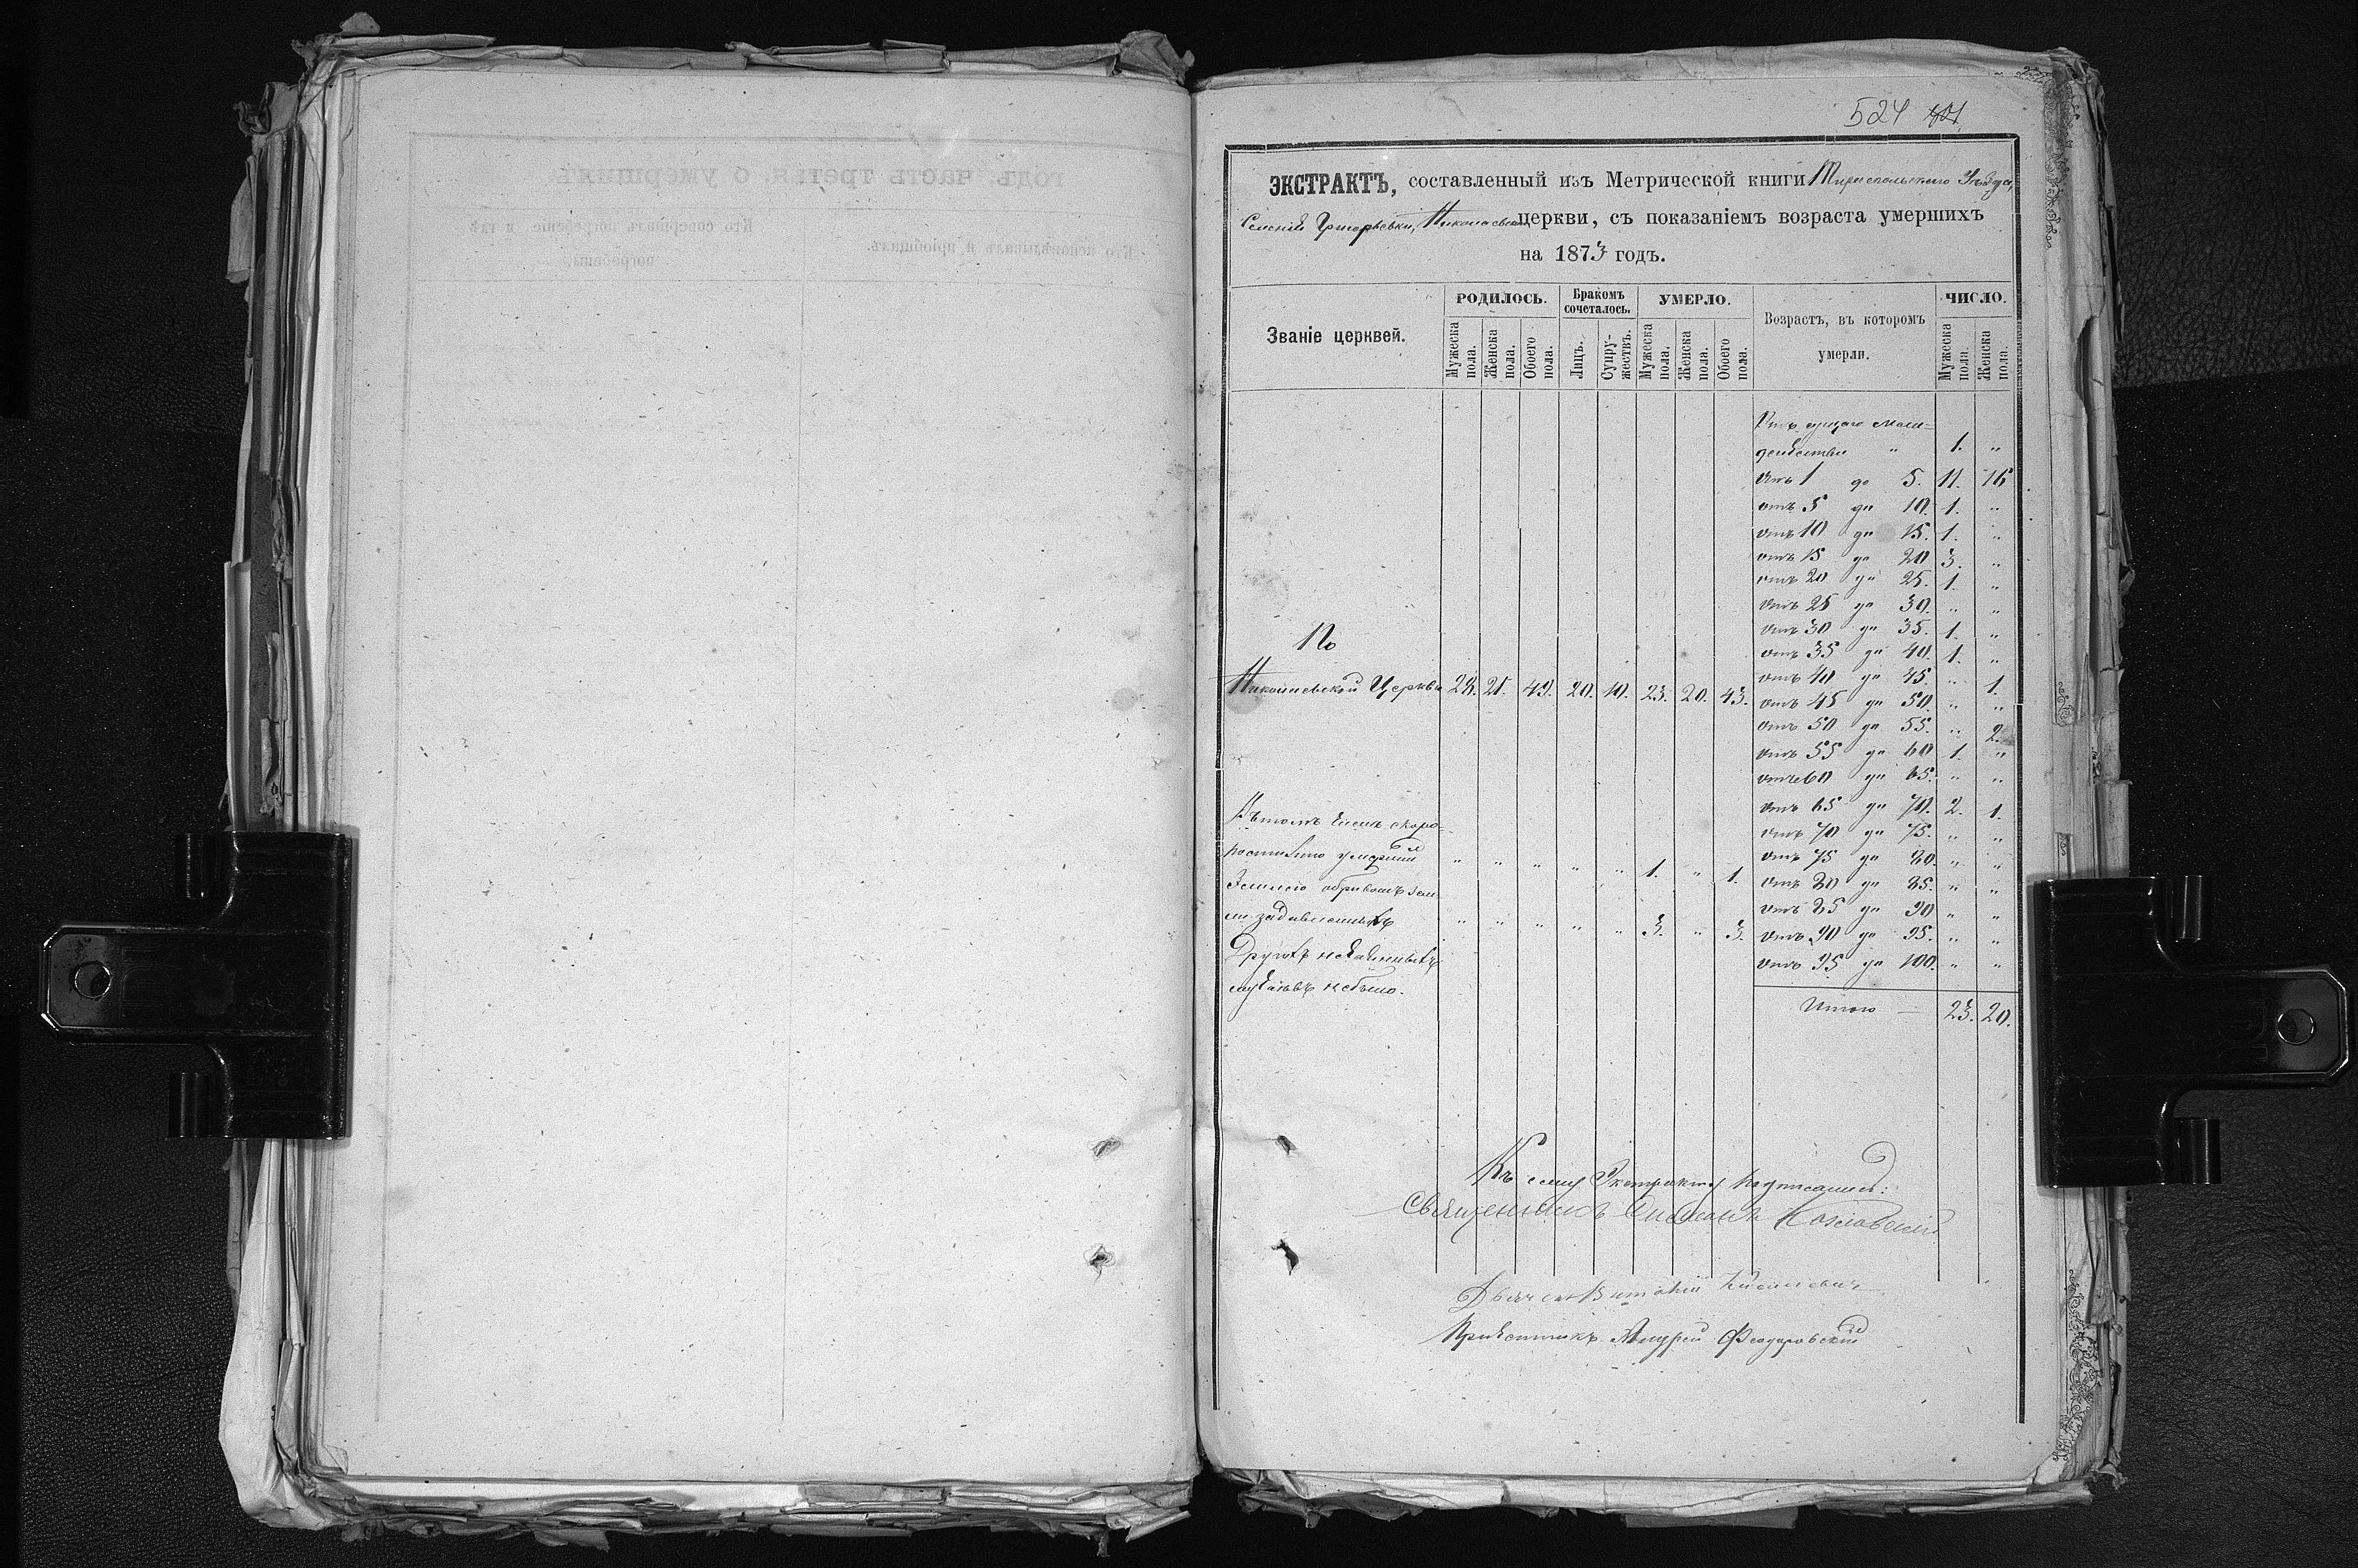 524 401
ЭКСТРАКТЪ, составленный изъ Метрической книги Тираспольскаго Уѣзда,
Селенія Григорьевки, Николаевской церкви, съ показаніемъ возраста умершихъ
на 1873 годъ.
Званіе церквей.
РОДИЛОСЬ.
Бракомъ сочеталось.
УМЕРЛО.
Возрастъ, въ которомъ умерли.
ЧИСЛО.
Мужеска пола.
Женска пола.
Обоего пола.
Лицъ.
Супружествъ.
Мужеска пола.
Женска пола.
Обоего пола.
Мужеска пола.
Женска пола.
Отъ сущаго мла-
денчества " 1. "
отъ 1 до 5. 11. 16
отъ 5 до 10. 1. "
отъ 10 до 15. 1. "
отъ 15 до 20 3. "
отъ 20 до 25. 1. "
отъ 25 до 30. " "
отъ 30 до 35. 1. "
отъ 35 до 40. 1. "
отъ 40 до 45. " 1.
отъ 45 до 50. " "
отъ 50 до 55. " 2.
отъ 55 до 60 1. "
отъ 60 до 65. " "
отъ 65 до 70. 2. 1.
отъ 70 до 75. " "
отъ 75 до 80. " "
отъ 80 до 85. " "
отъ 85 до 90 " "
отъ 90 до 95. " "
отъ 95 до 100. " "
Итого — 23. 20.
По
Николаевской Церкви 28. 21. 49. 20. 10. 23. 20. 43.
Въ томъ числѣ скоро-
постижно умершій " " " " " 1. " 1.
Землею обрывомъ зем-
ли задавленныхъ " " " " " 3. " 3.
Другихъ нечаянныхъ
случаевъ не было.
Къ сему Экстракту подписались:
Священникъ Козловскій
Дьячекъ Виталій Киселевичъ
Причетникъ Андрей Феодоровскій
годъ, часть третья, о умершихъ.
Кто исповѣдывалъ и пріобщалъ.
Кто совершалъ погребеніе и гдѣ
погребены.